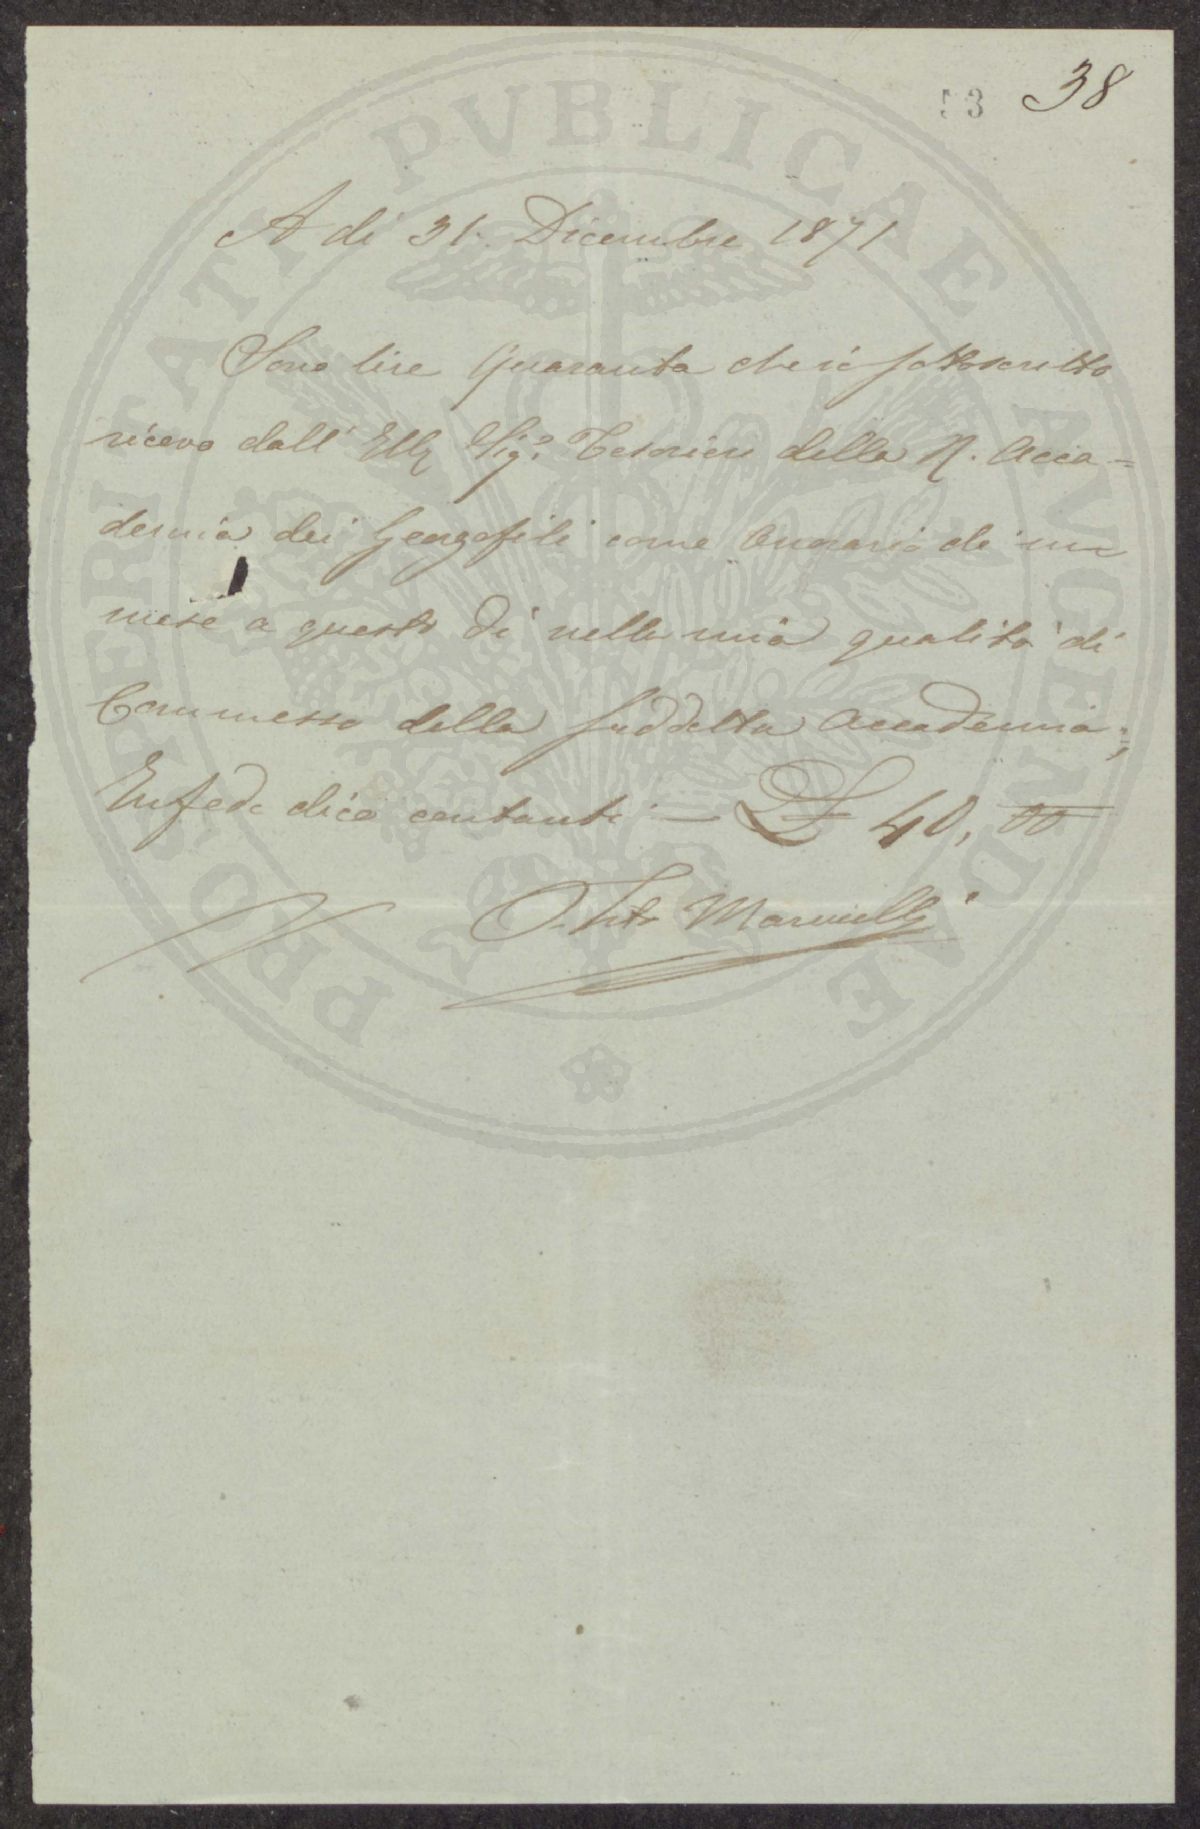 38
53
A di 31 Dicembre 1871
Sono lire Quaranta che io sottoscritto
ricevo dall' Sigr. Tesoriere della R. Acca=
demia dei Georgofili come Onorario di un
mese a questo dì nella mia qualità di
Commesso della suddetta Accademia;
In fede dico contanti — £ 40, 00
PROSPERITATI PVBLICAE AVGENDAE